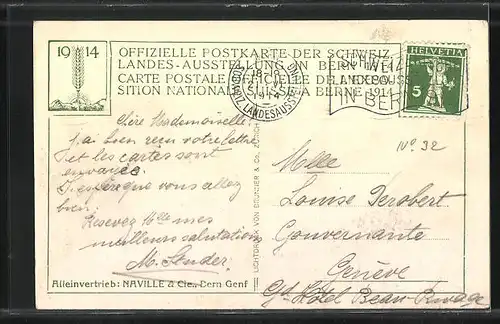 1914
OFFIZIELLE POSTKARTE DER SCHWEIZ.
LANDES-AUSSTELLUNG IN BERN 1914
CARTE POSTALE OFFICIELLE DE L'EXPO-
SITION NATIONALE SUISSE A BERNE 1914
SCHWEIZ.
LANDESAUSS
IN BERN
HELVETIA
5
No. 32
Chère Mademoiselle.
J'ai bien reçu votre lettre
et les cartes sont
envoyées.
J'espère que vous allez
bien.
Recevez Mlle mes
meilleurs salutations
M. Sender.
LICHTDRUCK VON BRUNNER & Co. ZÜRICH
Mlle
Louise Perobert
Gouvernante
Genève
Gd Hôtel Beau-Rivage
Alleinvertrieb: NAVILLE & Cie., Bern Genf